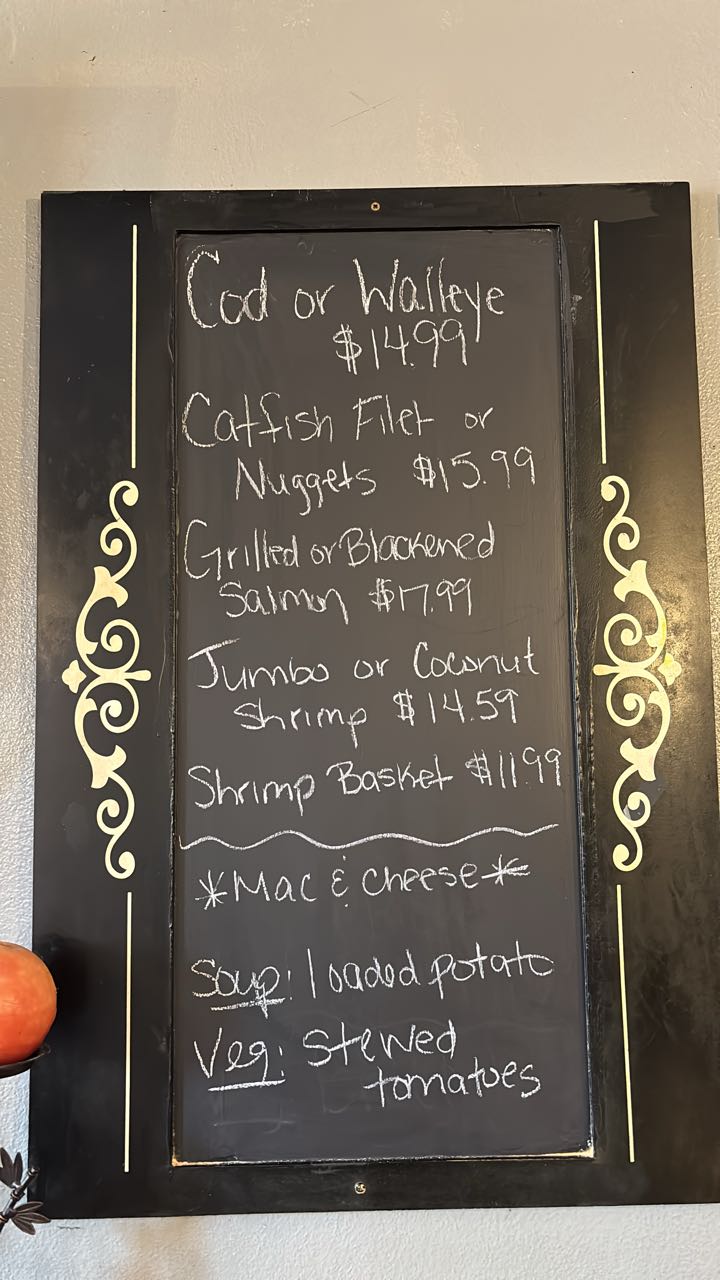 Cod or Walleye
$14.99
Catfish Filet or
Nuggets $15.99
Grilled or Blackened
Salmon $17.99
Jumbo or Coconut
Shrimp $14.59
Shrimp Basket $11.99
*Mac & Cheese*
Soup: loaded potato
Veg: Stewed
tomatoes